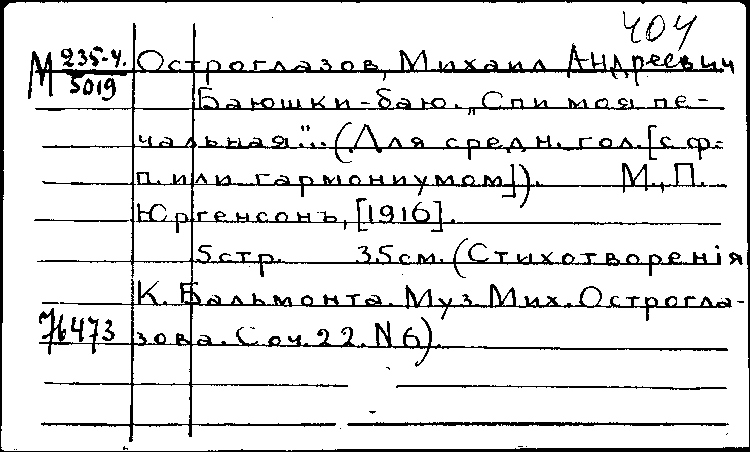 404
М 235-4. Остроглазов, Михаил Андреевич
5019
Баюшки-баю. „Спи моя пе-
чальная"... (Для средн. гол. [с ф.-
п. или гармониумом]). М., П.
Юргенсонъ, [1916].
5 стр. 35 см. (Стихотворенія
К. Бальмонта. Муз. Мих. Острогла-
зова. Соч. 22. N 6).